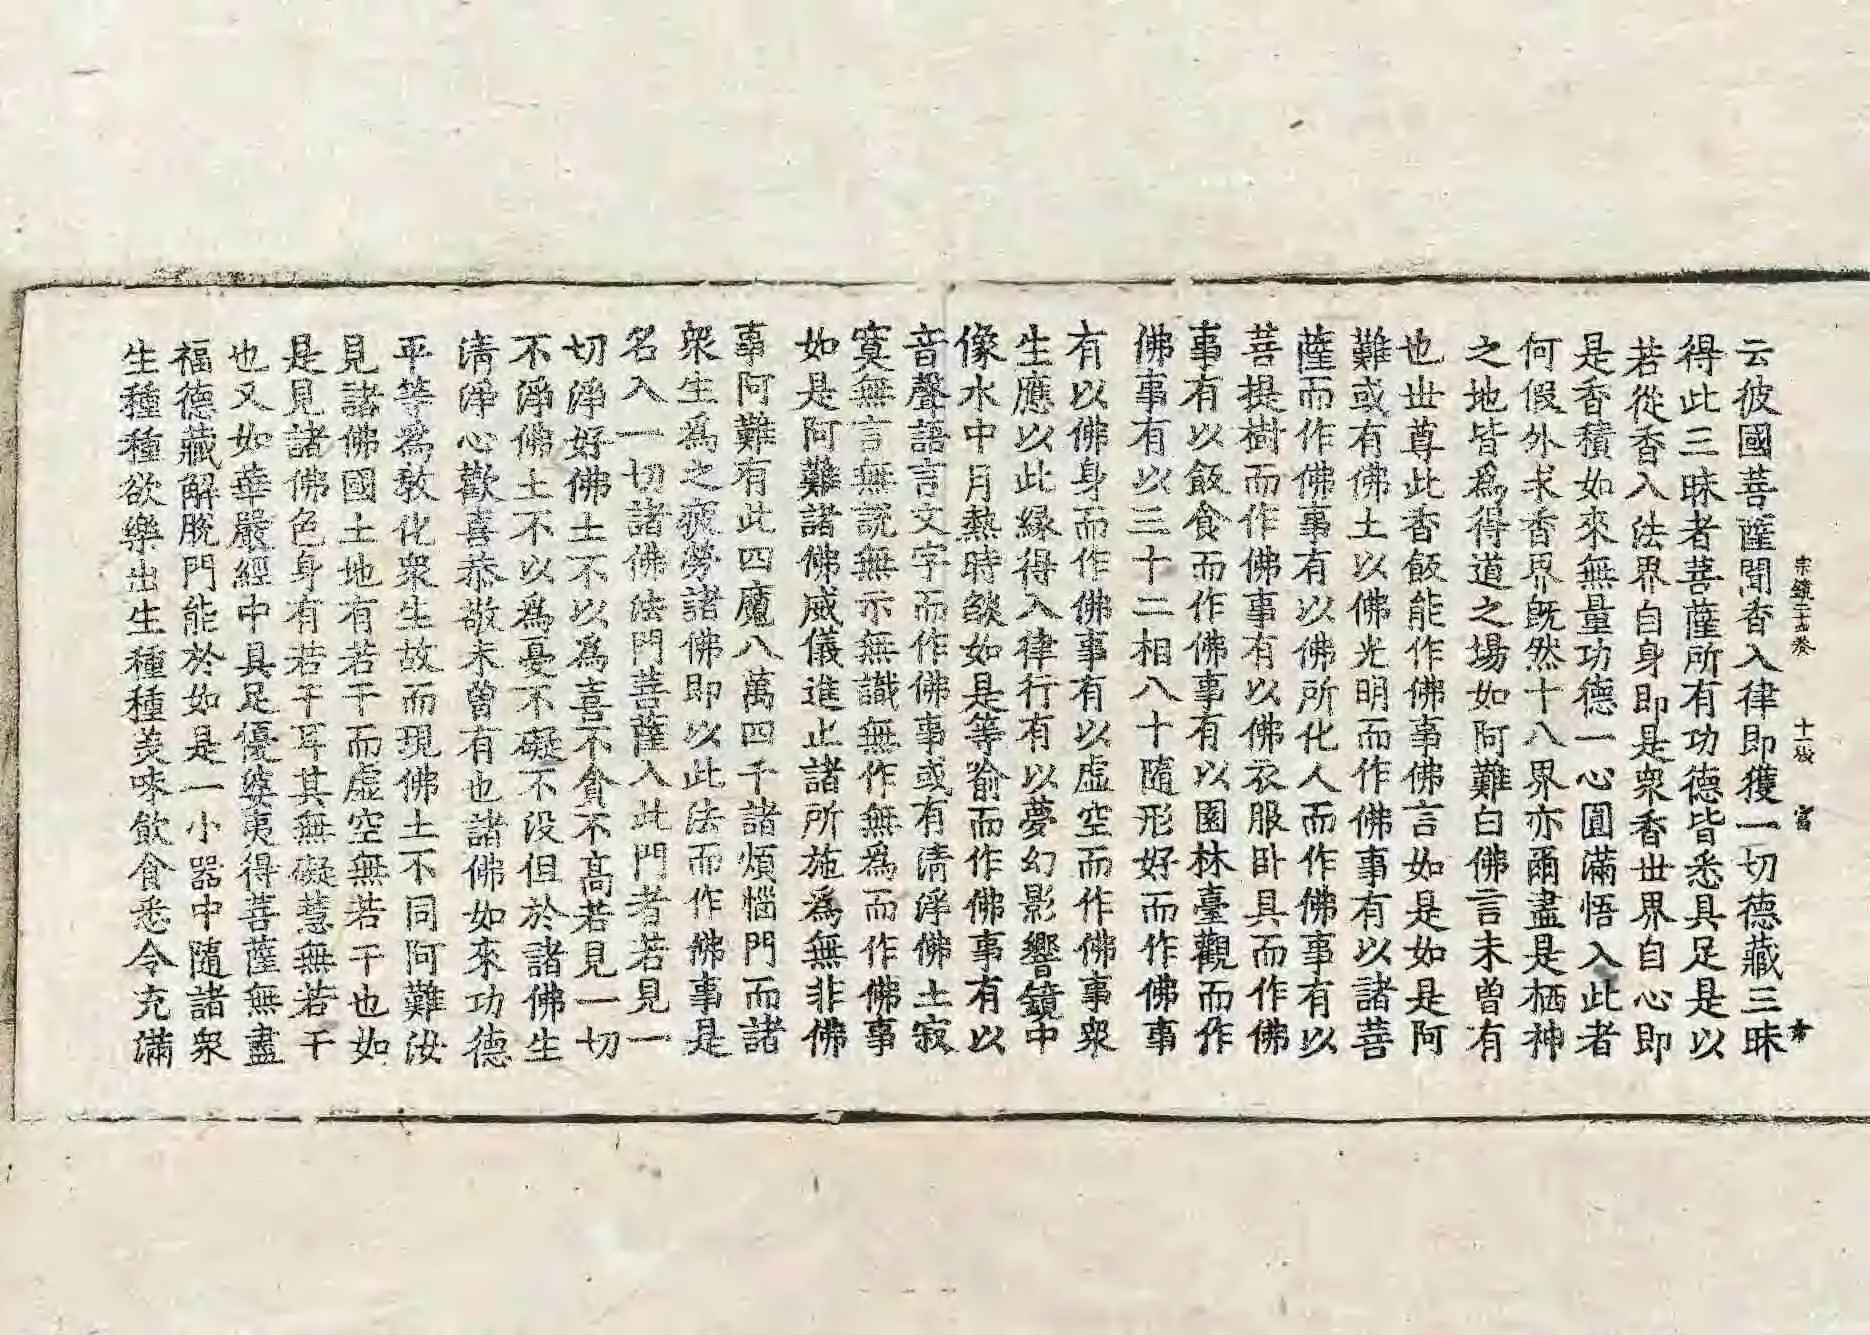 宗鏡二十四卷 十一板 富
云彼國菩薩聞香入律即獲一切德藏三昧
得此三昧者菩薩所有功德皆悉具足是以
若從香入法界自身即是衆香世界自心即
是香積如來無量功德一心圓滿悟入此者
何假外求香界旣然十八界亦爾盡是栖神
之地皆爲得道之場如阿難白佛言未曾有
也世尊此香飯能作佛事佛言如是如是阿
難或有佛土以佛光明而作佛事有以諸菩
薩而作佛事有以佛所化人而作佛事有以
菩提樹而作佛事有以佛衣服卧具而作佛
事有以飯食而作佛事有以園林臺觀而作
佛事有以三十二相八十隨形好而作佛事
有以佛身而作佛事有以虛空而作佛事衆
生應以此緣得入律行有以夢幻影響鏡中
像水中月熱時燄如是等喻而作佛事有以
音聲語言文字而作佛事或有清淨佛土寂
寞無言無說無示無識無作無爲而作佛事
如是阿難諸佛威儀進止諸所施爲無非佛
事阿難有此四魔八萬四千諸煩惱門而諸
衆生爲之疲勞諸佛即以此法而作佛事是
名入一切諸佛法門菩薩入此門者若見一
切淨好佛土不以爲喜不貪不高若見一切
不淨佛土不以爲憂不礙不没但於諸佛生
清淨心歡喜恭敬未曾有也諸佛如來功德
平等爲敎化衆生故而現佛土不同阿難汝
見諸佛國土地有若干而虛空無若干也如
是見諸佛色身有若干耳其無礙慧無若干
也又如華嚴經中具足優婆夷得菩薩無盡
福德藏解脫門能於如是一小器中隨諸衆
生種種欲樂出生種種美味飲食悉令充滿